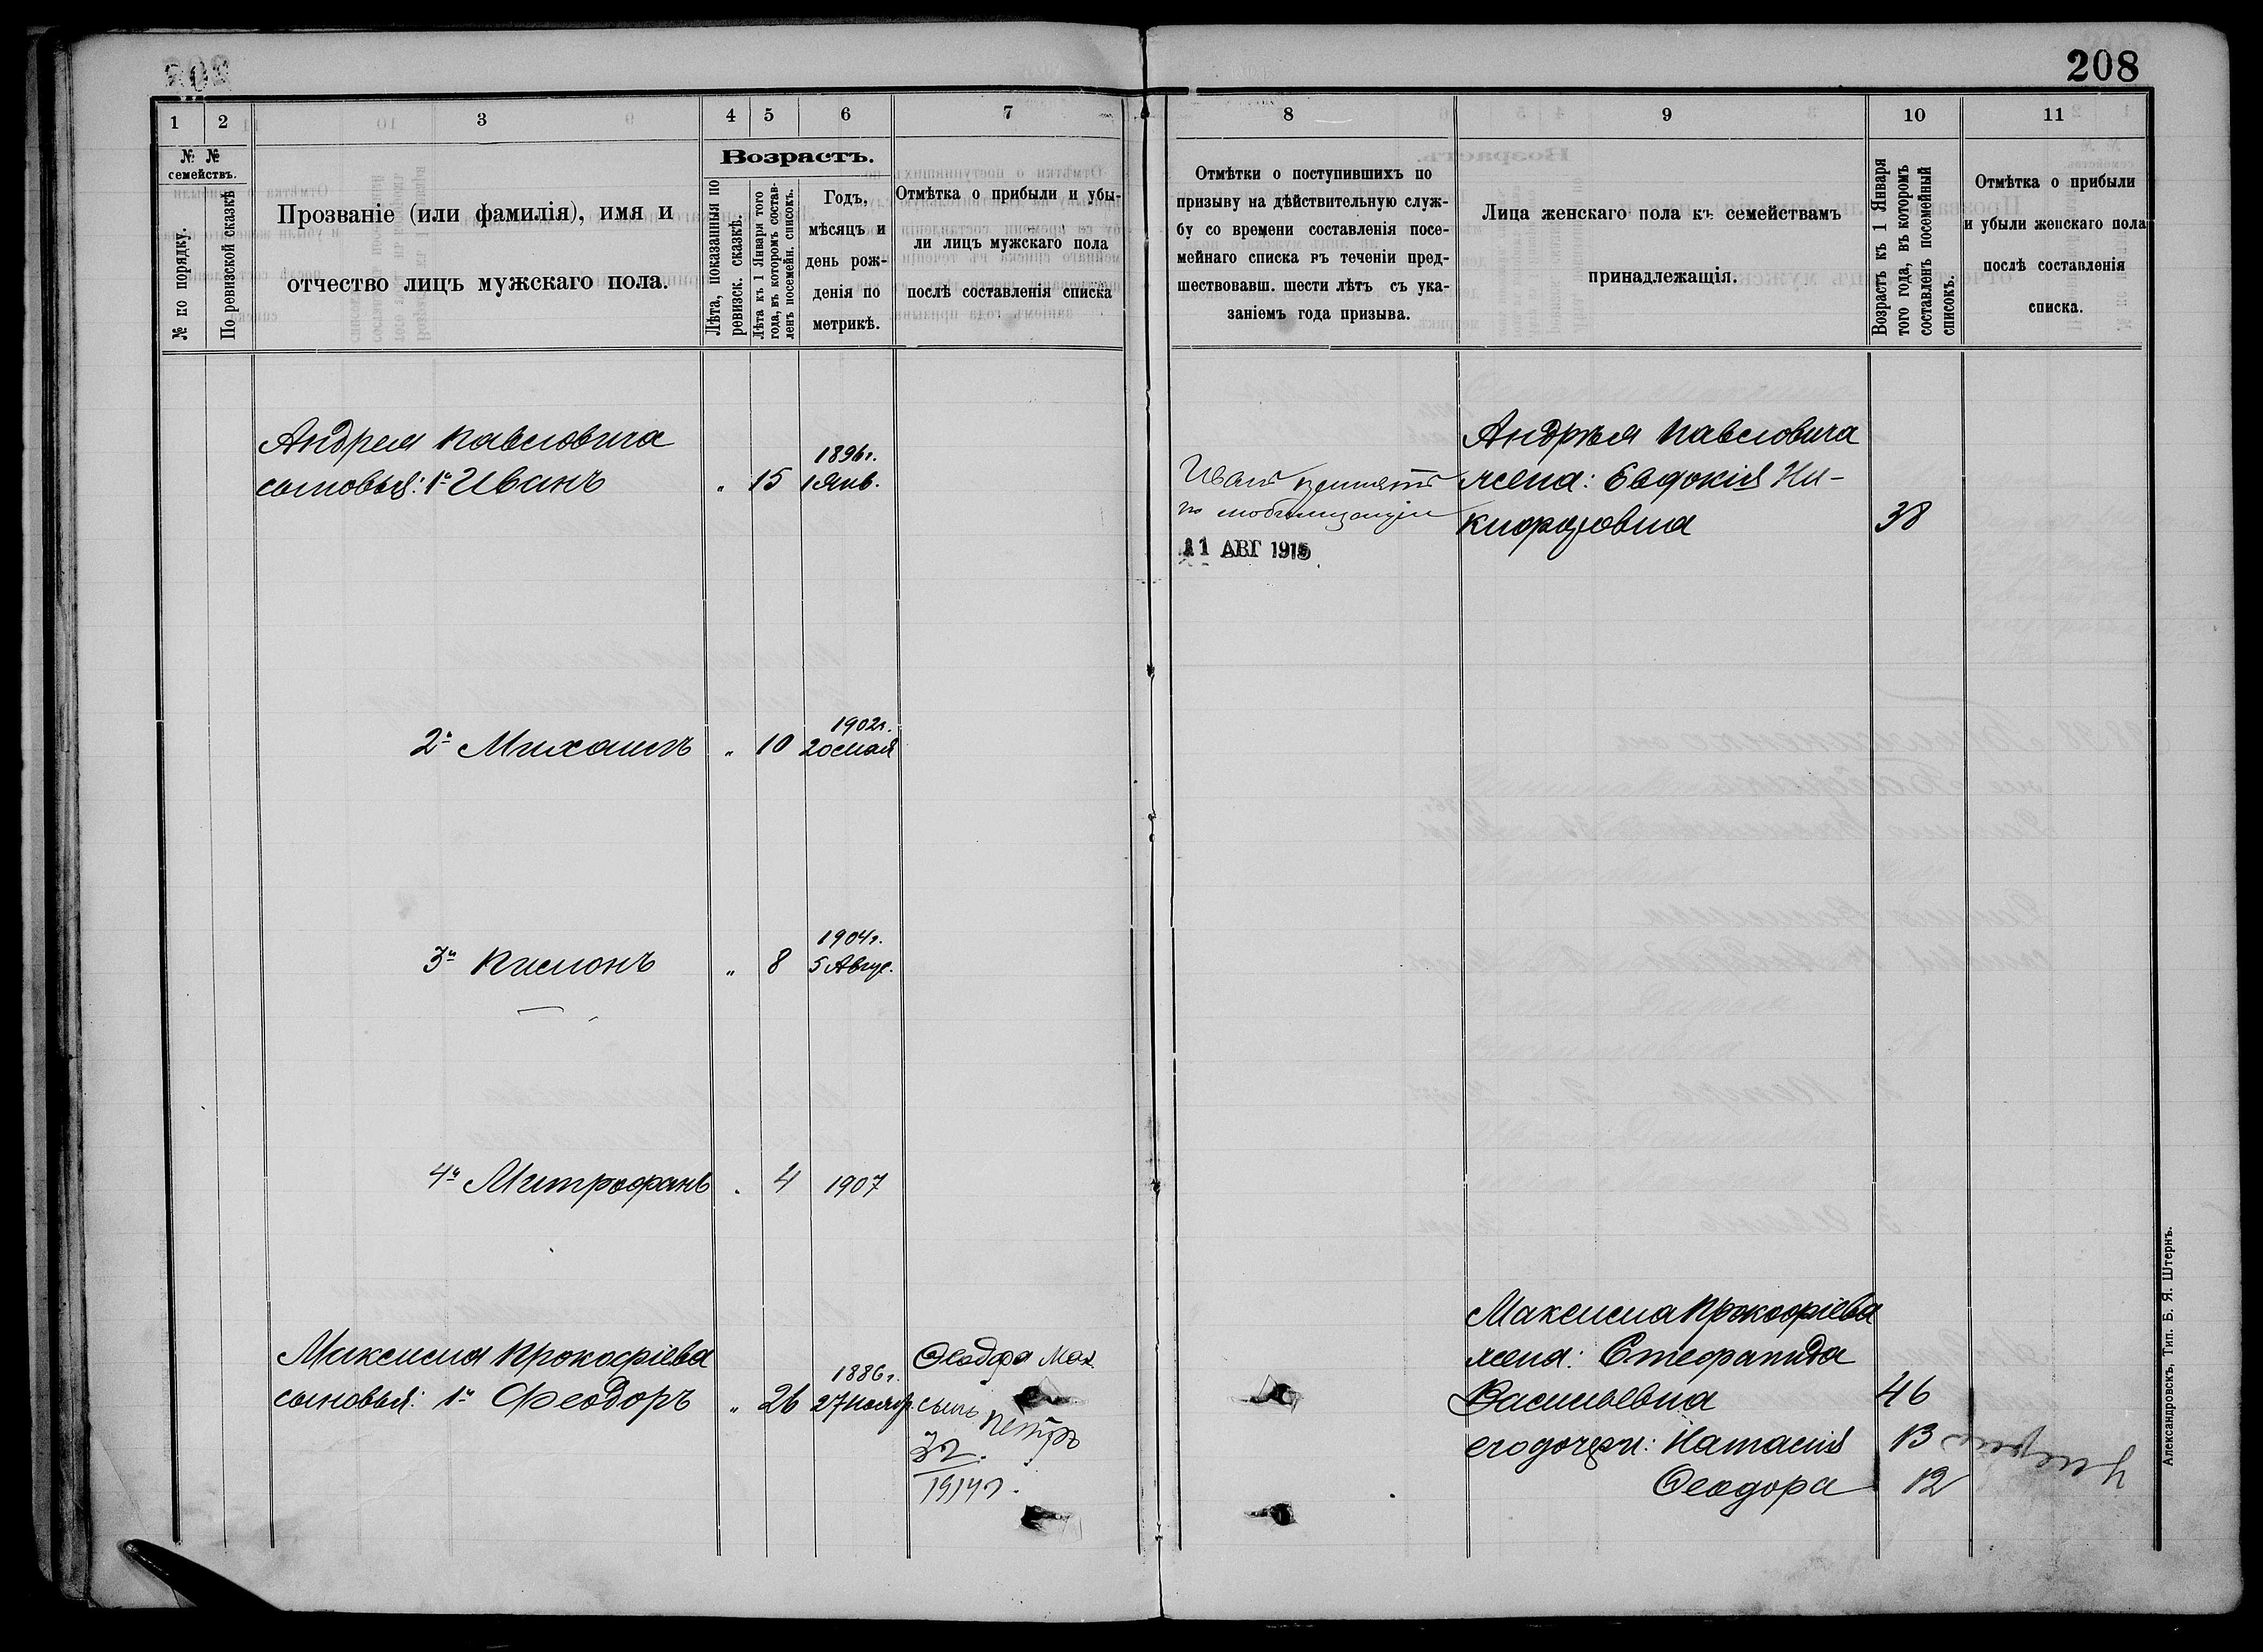 208
1
2
3
4
5
6
7
№ № семействъ.
№ по порядку.
По ревизской сказкѣ
Прозваніе (или фамилія), имя и
отчество лицъ мужскаго пола.
Возрастъ.
Лѣта, показанныя по
ревизск. сказкѣ.
Лѣта къ 1 Января того
года, въ которомъ состав-
ленъ посемейн. списокъ.
Годъ,
мѣсяцъ и
день рож-
денія по
метрикѣ.
Отмѣтка о прибыли и убы-
ли лицъ мужскаго пола
послѣ составленія списка
Андрея Павловича
1896 г.
сыновья: 1й Иванъ " 15 1 Янв.
1902 г.
2й Михаилъ " 10 20 мая
1904 г.
3й " 8 5 Авгус.
4й Митрофанъ " 4 1907
Максима Прокофіева
1886 г.
сыновья: 1й Феодоръ " 26 27 Ноябр.
Мак.
сынъ Петръ
1914 г.
8
9
10
11
Отмѣтки о поступившихъ по
призыву на дѣйствительную служ-
бу со времени составленія посе-
мейнаго списка въ теченіи пред-
шествовавш. шести лѣтъ съ ука-
заніемъ года призыва.
Лица женскаго пола къ семействамъ
принадлежащія.
Возрастъ къ 1 Января
того года, въ которомъ
составленъ посемейный
списокъ.
Отмѣтка о прибыли
и убыли женскаго пола
послѣ составленія
списка.
Иванъ принятъ
по мобилизаціи
11 АВГ 1915
Андрея Павловича
жена: Евдокія Ни-
кифоровна 38
Максима Прокофіева
жена: Стефанида
Васильевна 46
его дочери: Наталія 13
Феодора 12
Александровскъ, Тип. Б. Я. Штернъ.